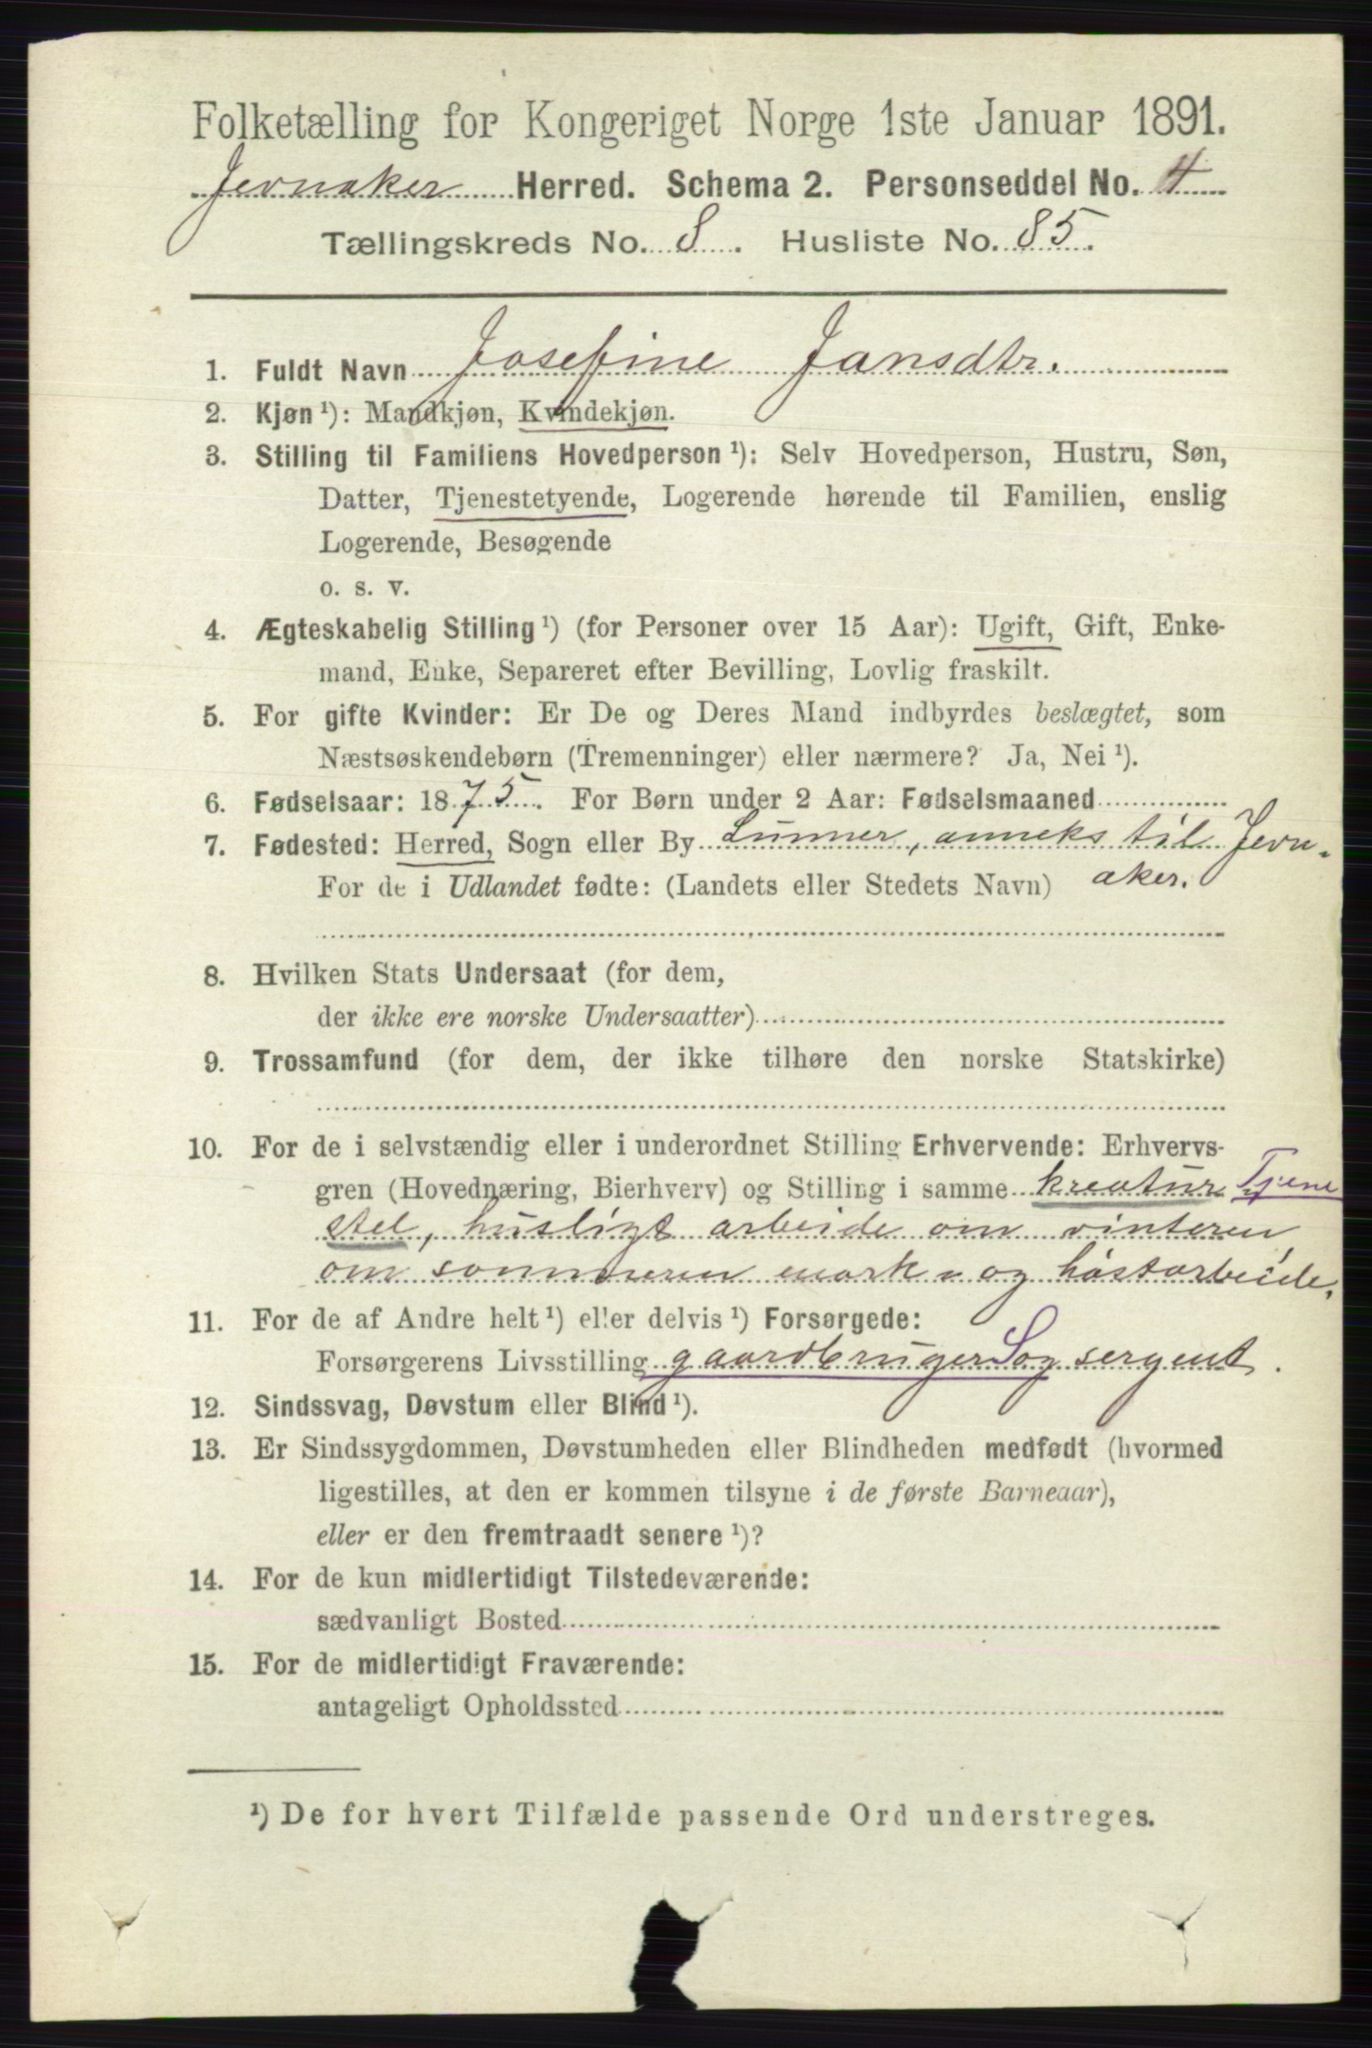 Folketælling for Kongeriget Norge 1ste Januar 1891.
Jevnaker Herred. Schema 2. Personseddel No. 4
Tællingskreds No. 8. Husliste No. 85.
1. Fuldt Navn Josefine Jansdtr.
2. Kjøn ¹): Mandkjøn, Kvindekjøn.
3. Stilling til Familiens Hovedperson ¹): Selv Hovedperson, Hustru, Søn,
Datter, Tjenestetyende, Logerende hørende til Familien, enslig
Logerende, Besøgende
o. s. v.
4. Ægteskabelig Stilling ¹) (for Personer over 15 Aar): Ugift, Gift, Enke-
mand, Enke, Separeret efter Bevilling, Lovlig fraskilt.
5. For gifte Kvinder: Er De og Deres Mand indbyrdes beslægtet, som
Næstsøskendebørn (Tremenninger) eller nærmere? Ja, Nei ¹).
6. Fødselsaar: 1875. For Børn under 2 Aar: Fødselsmaaned
7. Fødested: Herred, Sogn eller By Lunner, anneks til Jevn-
For de i Udlandet fødte: (Landets eller Stedets Navn) aker.
8. Hvilken Stats Undersaat (for dem,
der ikke ere norske Undersaatter)
9. Trossamfund (for dem, der ikke tilhøre den norske Statskirke)
10. For de i selvstændig eller i underordnet Stilling Erhvervende: Erhvervs-
gren (Hovednæring, Bierhverv) og Stilling i samme kreatur Tjene
stel, husligt arbeide om vinteren
om sommeren mark- og høstarbeide.
11. For de af Andre helt ¹) eller delvis ¹) Forsørgede:
Forsørgerens Livsstilling gaardbruger S og sergent.
12. Sindssvag, Døvstum eller Blind ¹).
13. Er Sindssygdommen, Døvstumheden eller Blindheden medfødt (hvormed
ligestilles, at den er kommen tilsyne i de første Barneaar),
eller er den fremtraadt senere ¹)?
14. For de kun midlertidigt Tilstedeværende:
sædvanligt Bosted
15. For de midlertidigt Fraværende:
antageligt Opholdssted
¹) De for hvert Tilfælde passende Ord understreges.